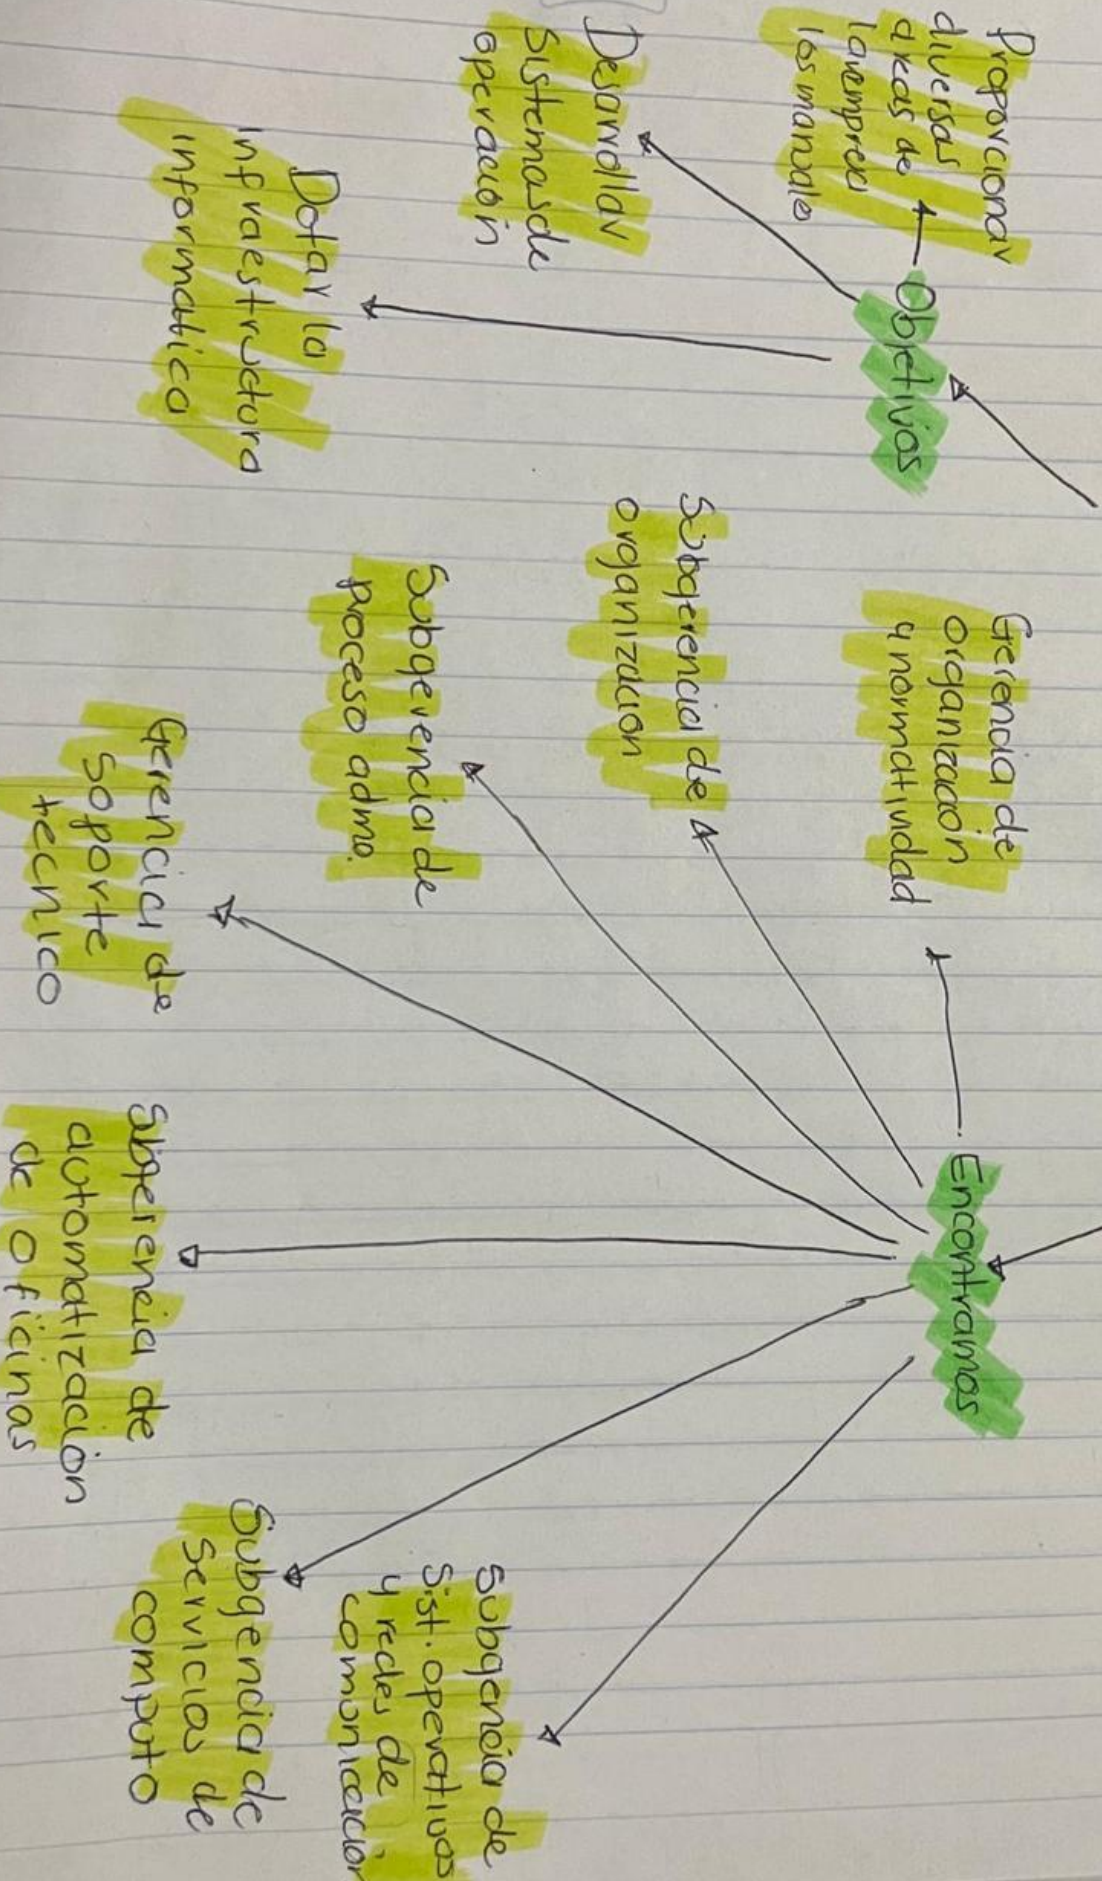 Objetivos
Proporcionar
diversas
areas de
la empresa
los manuales
Desarrollar
Sistemas de
operación
Dotar la
infraestructura
informatica
Encontramos
Gerencia de
organización
y normatividad
Subgerencia de
organización
Subgerencia de
proceso admo.
Gerencia de
soporte
tecnico
Subgerencia de
automatización
de oficinas
Subgencia de
servicios de
computo
Subgencia de
Sist. operativos
y redes de
comunicación